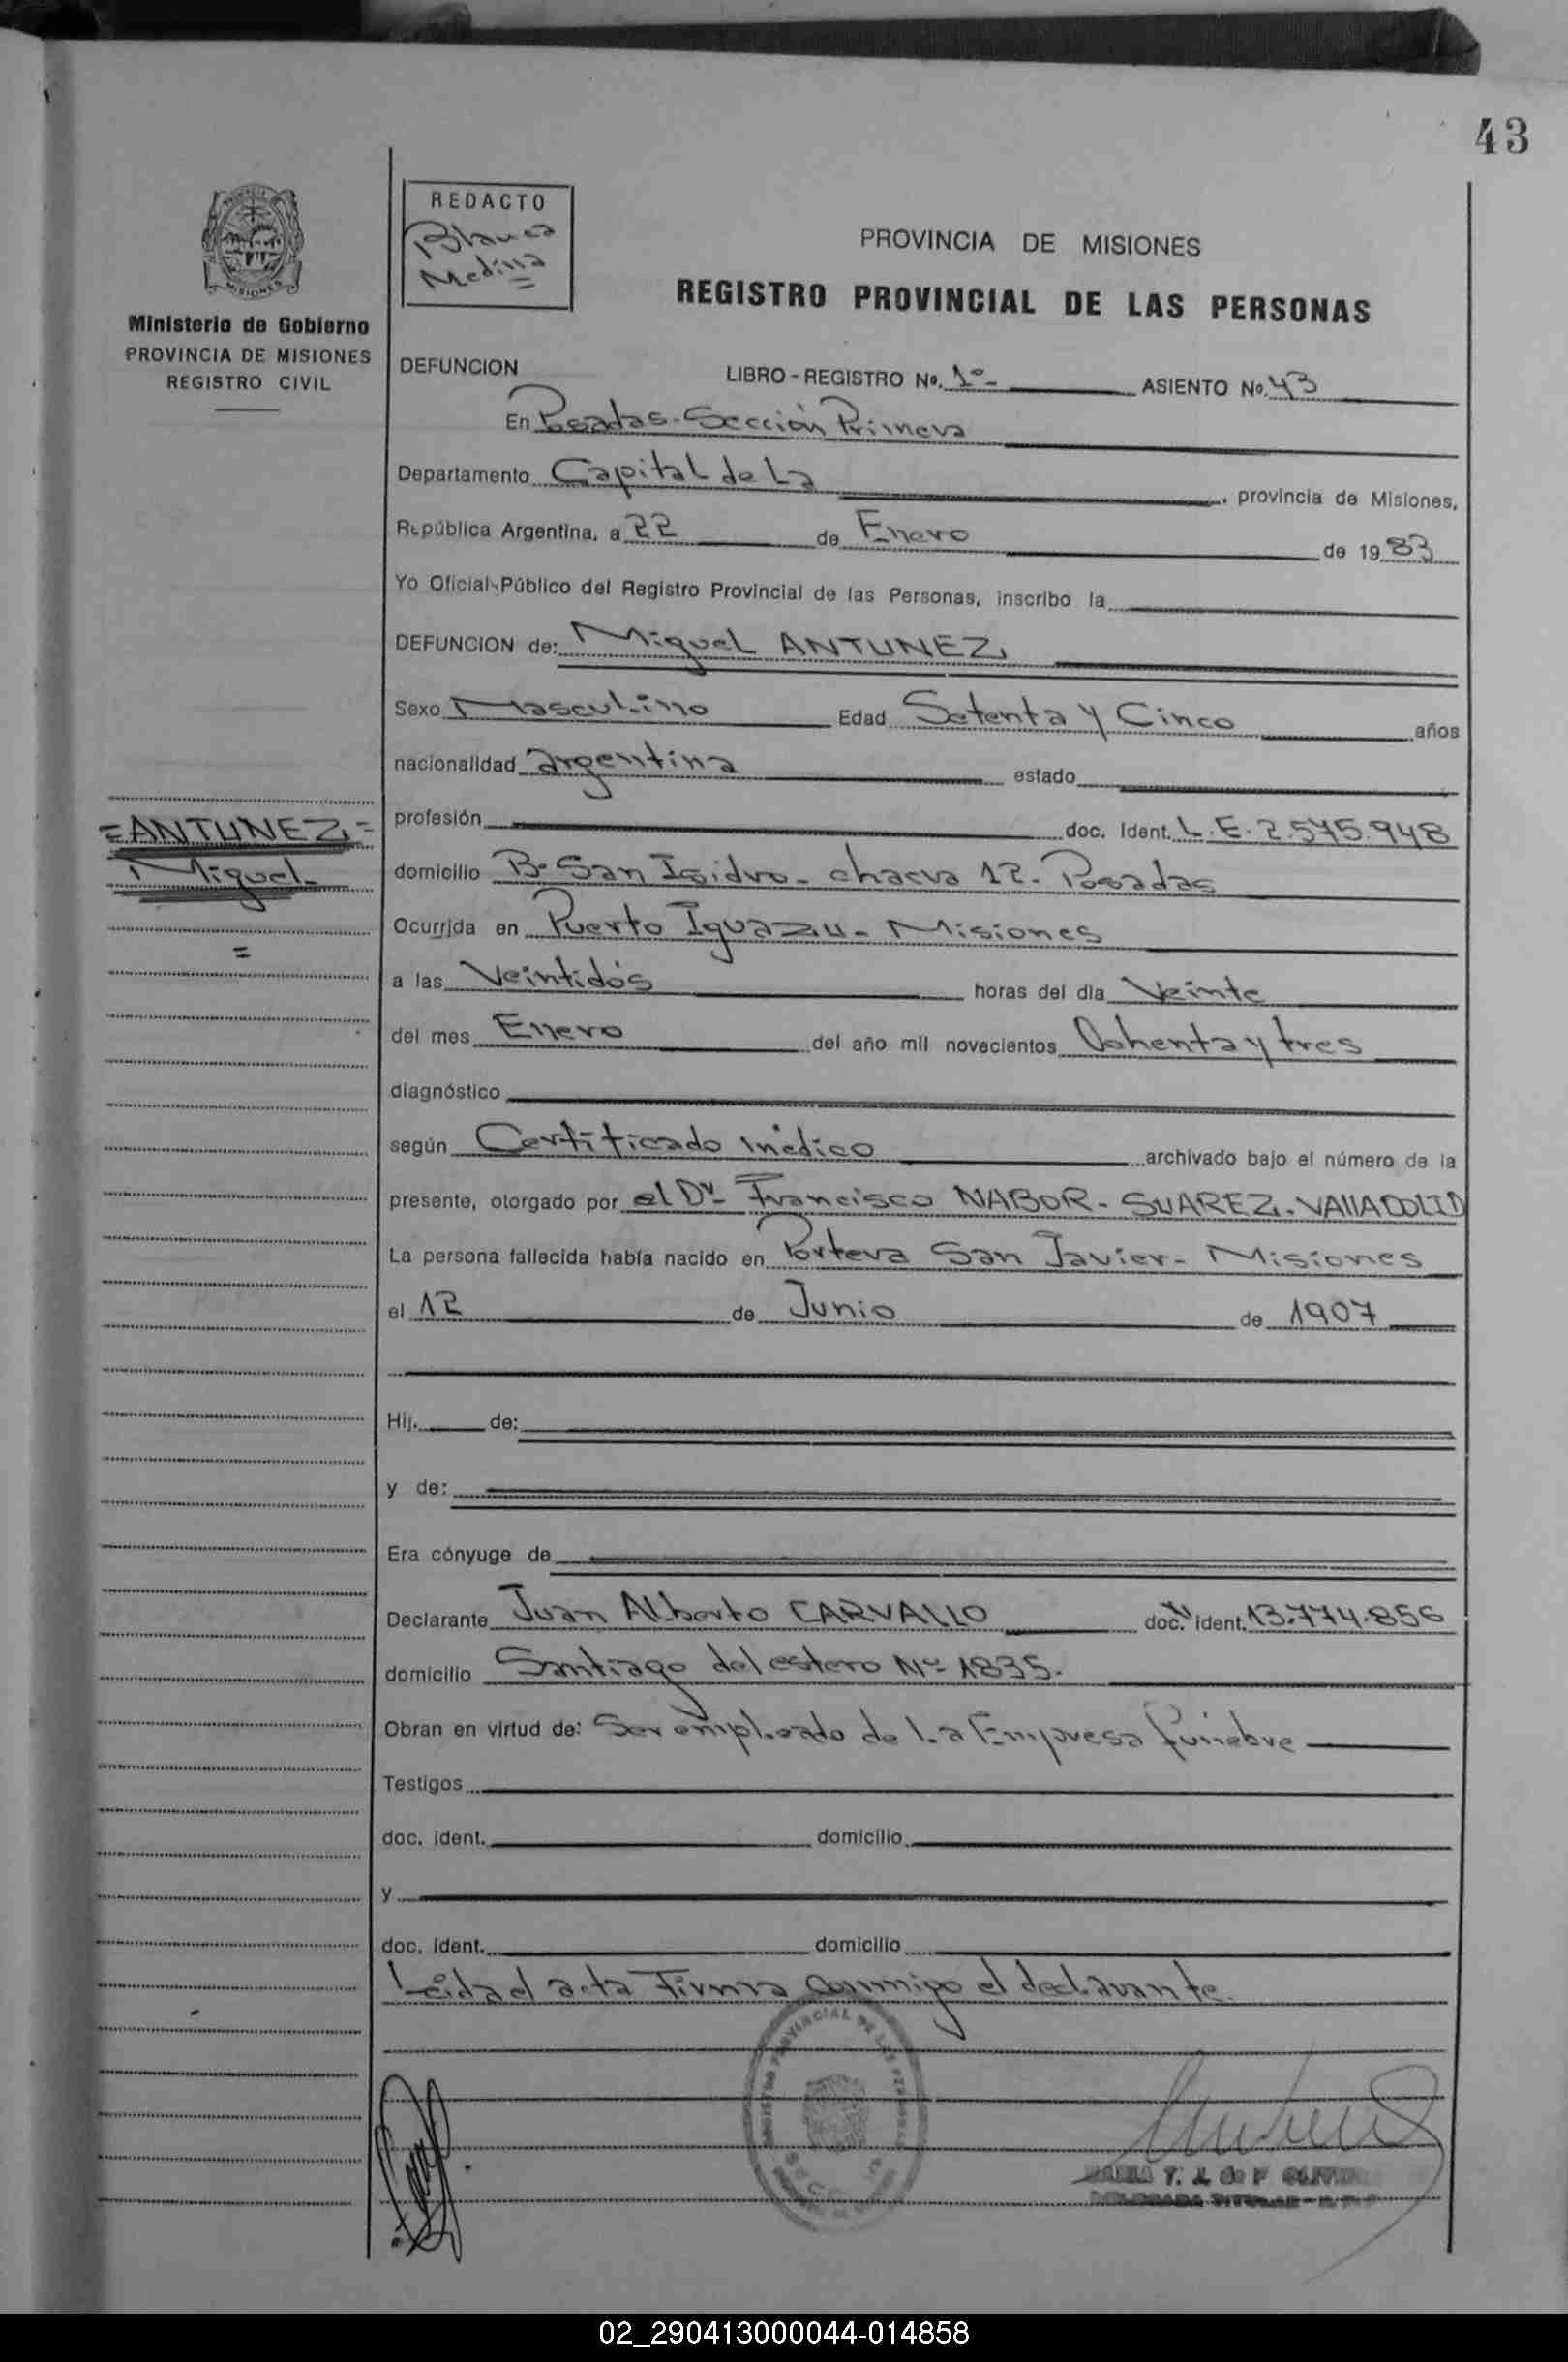 43
REDACTO
Blanca
Medina
PROVINCIA DE MISIONES
REGISTRO PROVINCIAL DE LAS PERSONAS
Ministerio de Gobierno
PROVINCIA DE MISIONES
REGISTRO CIVIL
DEFUNCION LIBRO - REGISTRO No. 1º- ASIENTO No. 43
En Posadas-Sección Primera
Departamento Capital de La, provincia de Misiones,
República Argentina, a 22 de Enero de 1983
Yo Oficial Público del Registro Provincial de las Personas, inscribo la
DEFUNCION de: Miguel ANTUNEZ
Sexo Masculino Edad Setenta y Cinco años
nacionalidad argentina estado
=ANTUNEZ=
Miguel
=
profesión doc. Ident. L.E. 2.575.948
domicilio Bº San Isidro - chacra 12. Posadas
Ocurrida en Puerto Iguazu - Misiones
a las Veintidós horas del día Veinte
del mes Enero del año mil novecientos Oohenta y tres
diagnóstico
según Certificado médico archivado bajo el número de la
presente, otorgado por el Dr. Francisco NABOR - SUAREZ - VALLADOLID
La persona fallecida había nacido en Portera San Javier - Misiones
el 12 de Junio de 1907
Hij. de:
y de:
Era cónyuge de
Declarante Juan Alberto CARVALLO doc. ident. 13.774.856
domicilio Santiago del estero Nº 1835.
Obran en virtud de: Ser empleado de La Empresa funebre
Testigos
doc. ident. domicilio
y
doc. ident. domicilio
Leida el acta Firma conmigo el declarante.
02_290413000044-014858